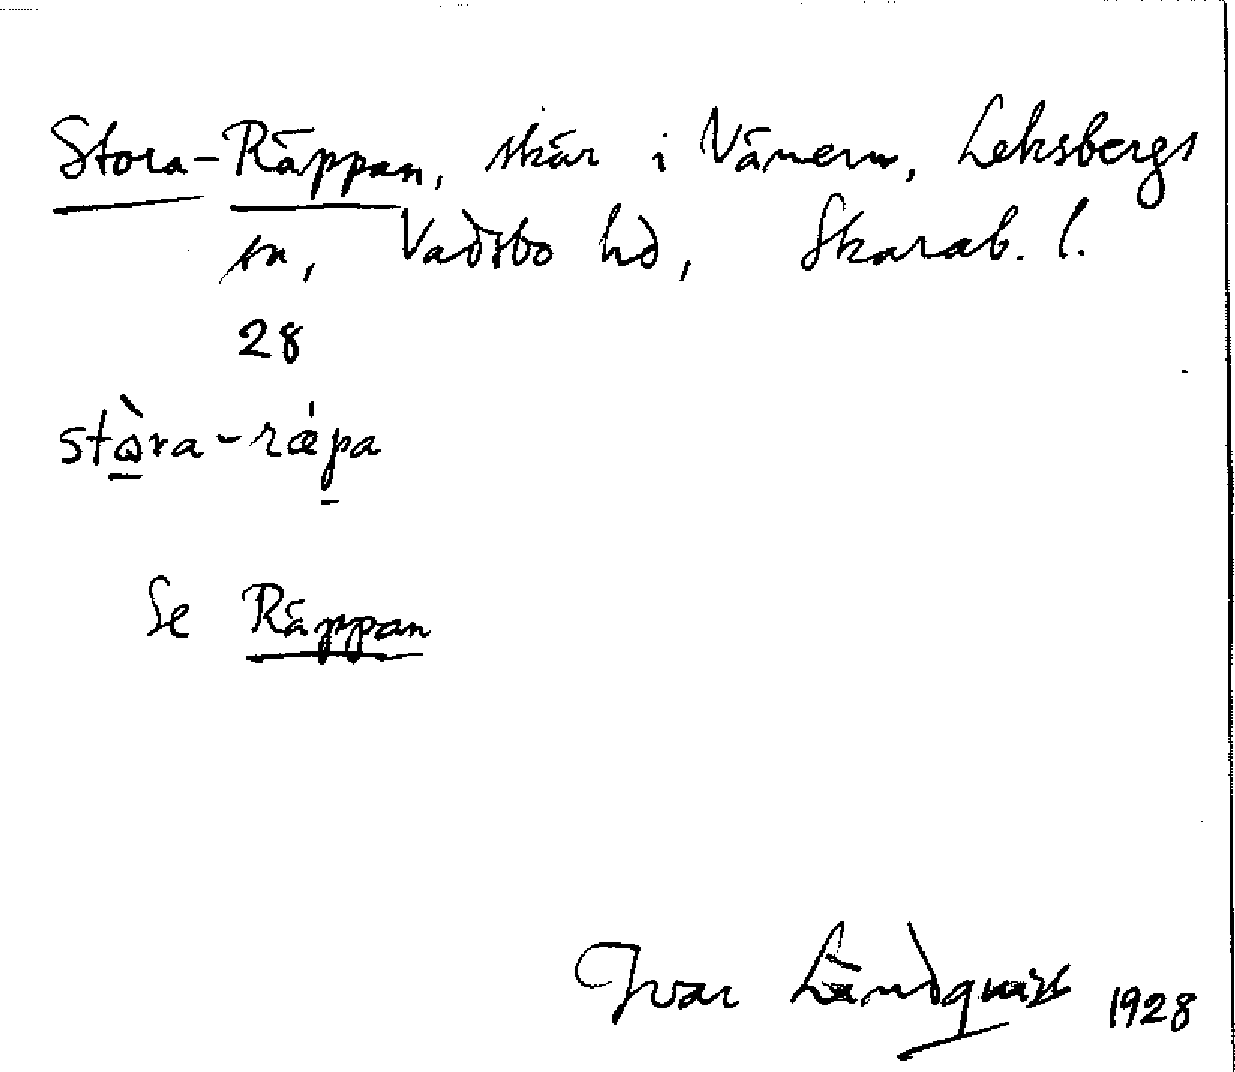 Stora-Räppan, skär i Vänern, Leksbergs
sn, Vadsbo hd, Skarab. l.
28
stὼra-rǽpa
Se Räppan
Ivar Lundquist 1928